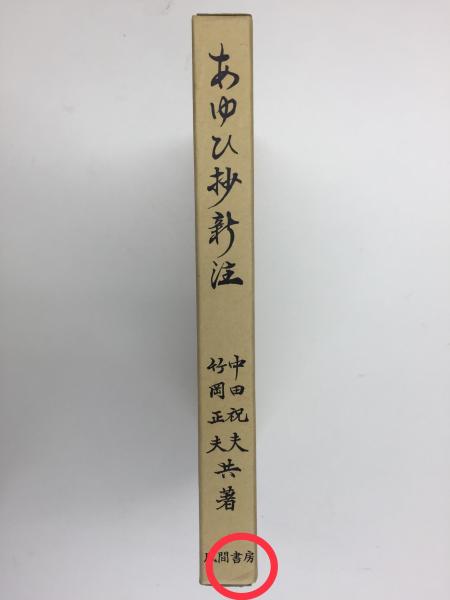 あゆひ抄新注
中田祝夫
竹岡正夫
共著
風間書房